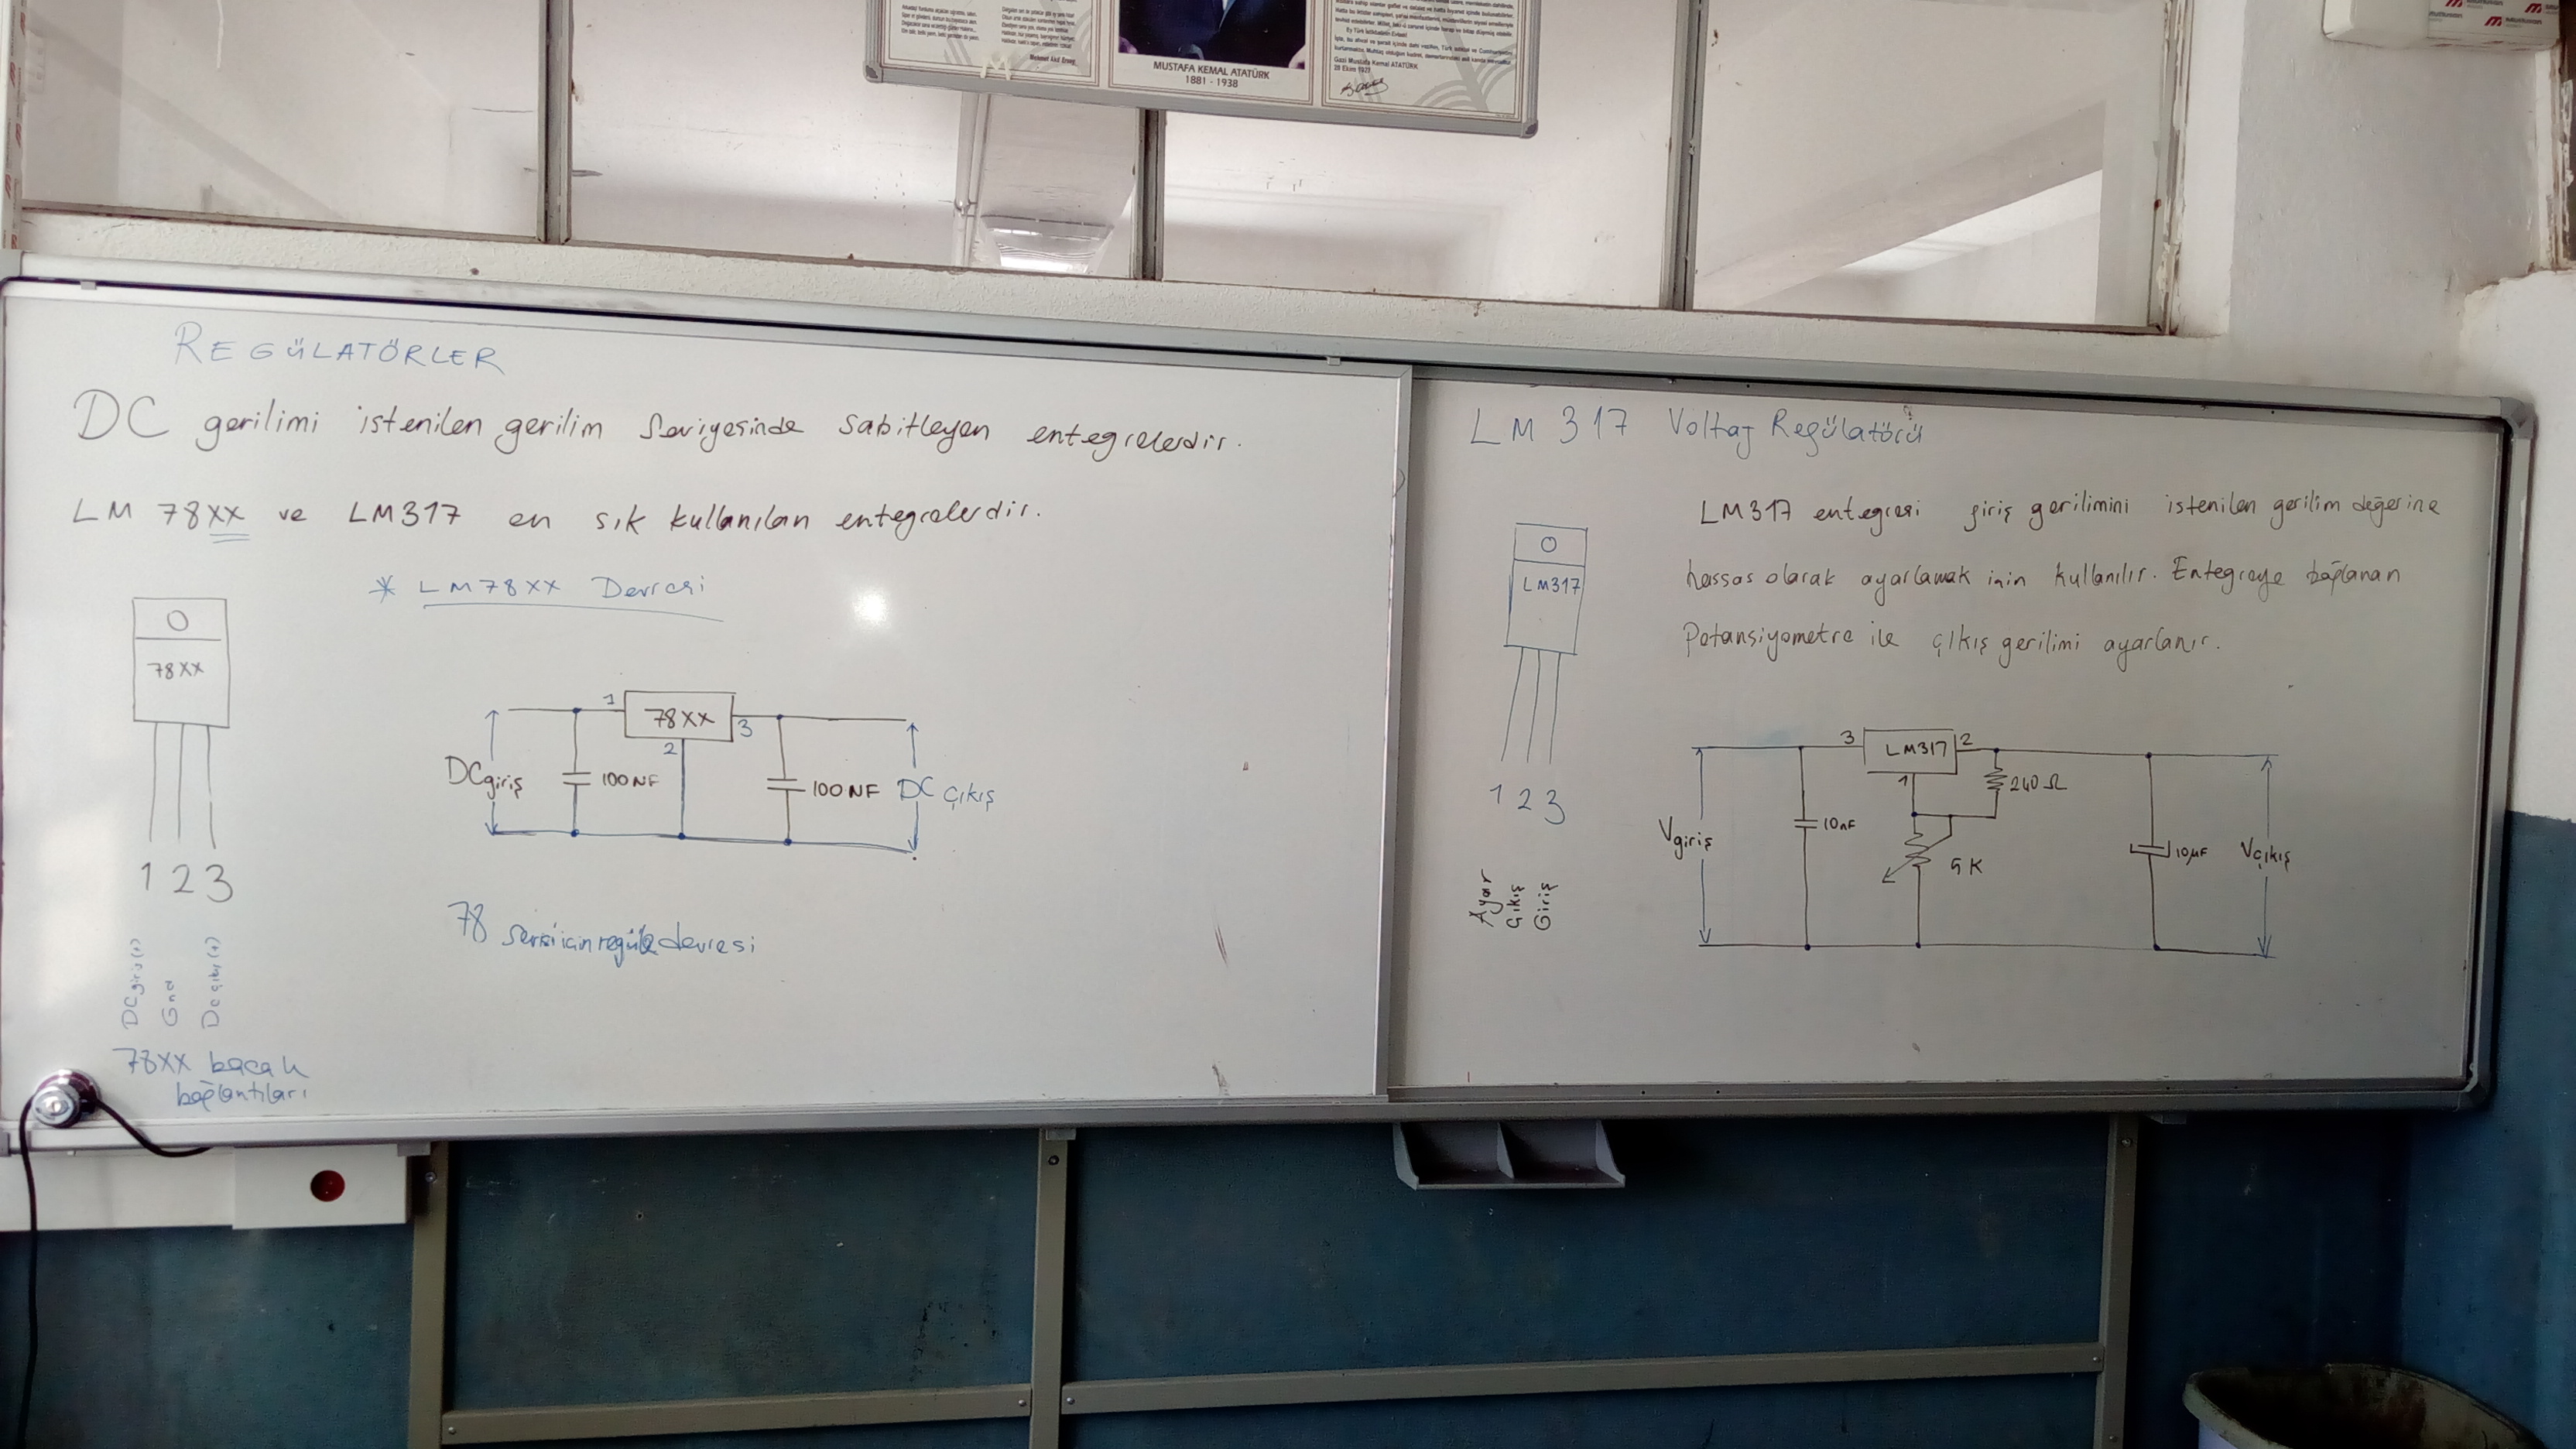 MUSTAFA KEMAL ATATÜRK
1881 - 1938
Mehmet Akif Ersoy
Ey Türk İstikbalinin Evladı!
Gazi Mustafa Kemal ATATÜRK
20 Ekim 1927
REGÜLATÖRLER
DC gerilimi istenilen gerilim seviyesinde sabitleyen entegrelerdir.
LM 78XX ve LM317 en sık kullanılan entegrelerdir.
* LM78XX Devresi
78XX
1 2 3
DCgiriş(+)
Gnd
Dc çıkış(+)
78XX bacak
bağlantıları
1
78XX
3
2
DCgiriş
100NF
100NF
DC çıkış
78 serisi için regüle devresi
LM 317 Voltaj Regülatörü
LM317 entegresi giriş gerilimini istenilen gerilim değerine
hassas olarak ayarlamak için kullanılır. Entegreye bağlanan
Potansiyometre ile çıkış gerilimi ayarlanır.
LM317
1 2 3
Ayar
Çıkış
Giriş
3
LM317
2
1
240Ω
Vgiriş
10nF
5K
10µF
Vçıkış